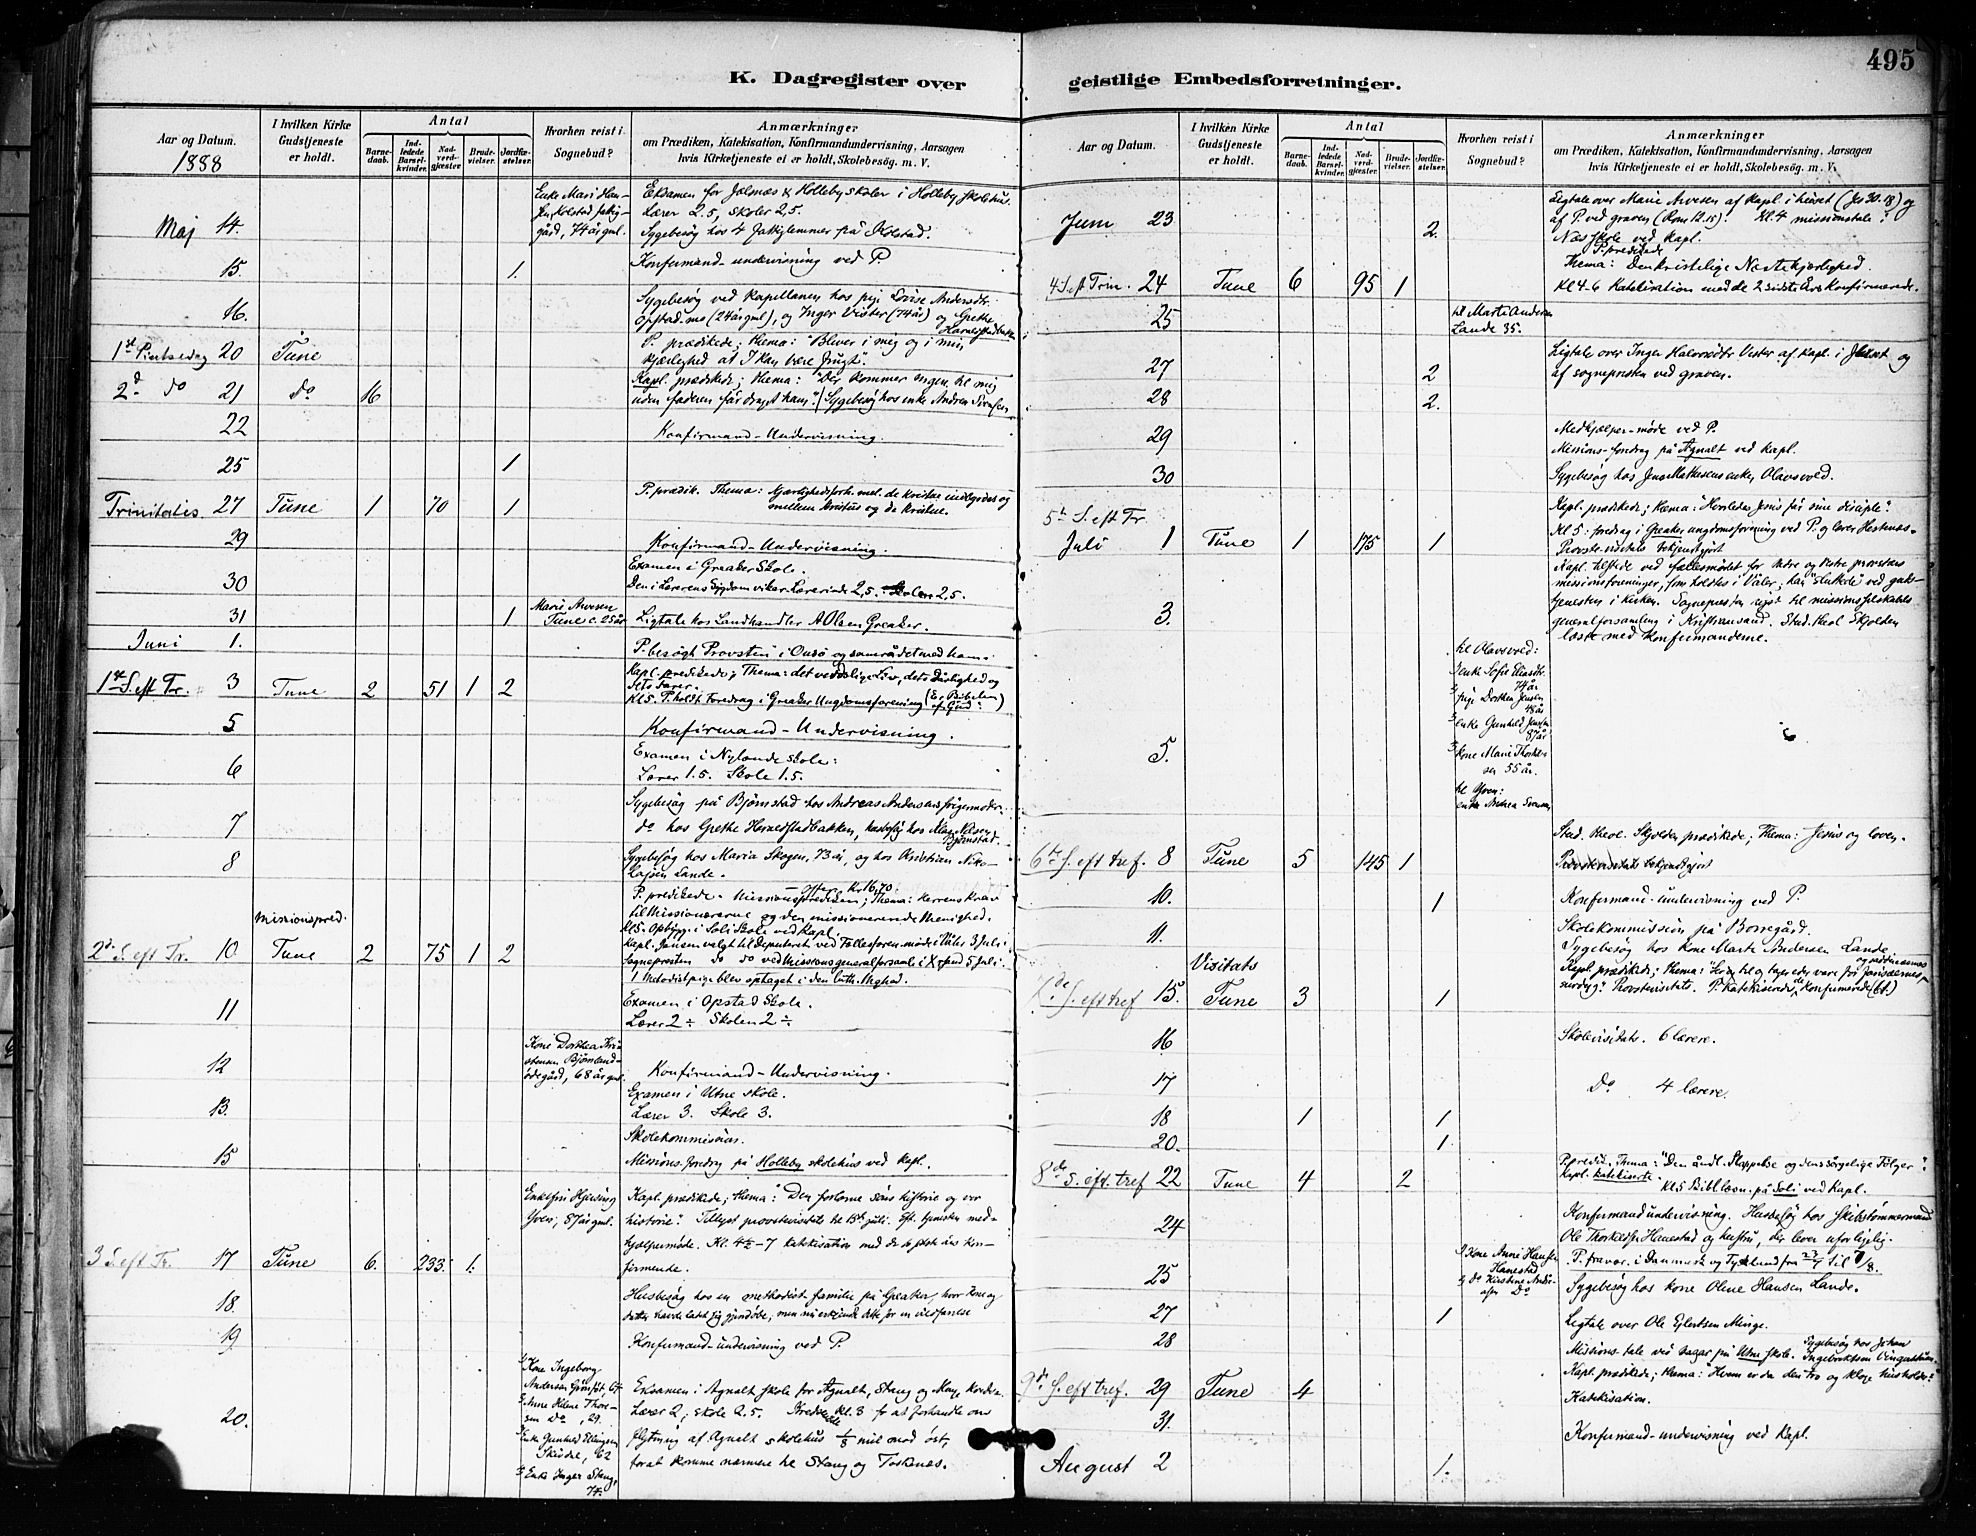 495
K. Dagregister over geistlige Embedsforretninger.
Aar og Datum.
1888
I hvilken Kirke Gudstjeneste er holdt.
Antal
Barnedaab.
Indledede Barselkvinder.
Nadverdgjester
Brudevielser.
Jordfæstelser.
Hvorhen reist i Sognebud?
Anmærkninger
om Prædiken, Katekisation, Konfirmandundervisning, Aarsagen
hvis Kirketjeneste ei er holdt, Skolebesög. m. V.
Maj 14. Enke Mari Hansen, Kolstad fattiggård, 74 år gml. Eksamen for Jelsnæs & Holleby skoler i Holleby skolehus.
Lærer 2.5, skoler 2,5.
Sygebesøg hos 4 fattiglemmer på Kolstad.
15. 1. Konfirmand-undervisning ved P.
16. Sygebesøg ved kapellanen hos pige Lovise Andersdtr.
Opstad mo (24 år gml), og Inger Vister (74 år) og Grethe
1st Pintsedag 20 Tune P. prædikede; thema: "Bliver i meg og i min
kjærlighed at I kan bære frugt".
2d do 21 do 16 Kapl. prædikede; thema: "Der kommer ingen til mig
uden faderen får draget ham". Sygebesøg hos enke Andrea
22 Konfirmand-Undervisning.
25 1
Trinitatis. 27 Tune 1 70 1 P. prædik. Thema: Kjærlighedsforh. mel. de kristne indbyrdes og
mellem Kristus og de kristne.
29 Konfirmand-Undervisning.
30 Examen i Greaker Skole.
Den i Lærerens Sygdom vikar. Lærerinde 2,5. Skolen 2,5.
31 1 Marie Arvesen Tune c. 25 år Ligtale hos Landhandler A Olsen Greaker.
Juni 1. P. besøgte Provsten i Onsø og samrådet med ham.
1st S. eft Tr. 3 Tune 2 51 1 2 Kapl. prædikede; Thema: det verdslige Liv, dets Dårlighed og
dets Farer.
Kl 5. P. holdt Foredrag i Greaker Ungdomsforening (Er Bibelen af Gud?)
5 Konfirmand-Undervisning.
6 Examen i Nylande skole:
Lærer 1.5. Skole 1.5.
7 Sygebesøg på Bjørnstad hos Andreas Andersens svigermoder.
do hos Grethe Hornesstadbakken, husbesøg hos
Bjørnstad.
8 Sygebesøg hos Maria Skogen, 73 år, og hos Kristian Nikolajsen Lande.
missionspred.
2d S. eft Tr. 10 Tune 2 75 1 2 P. prædikede. Missionsprediken; Thema: Herrens Krav
til Missionærerne og den missionerende Menighed.
Kl 5. Opbygg. i Soli Skole ved Kapl.
Kapl. Jansen valgt til Deputeret ved Fællesforen. møde i Våler 3 Juli.
Sognepresten do do ved Missionsgeneralforsaml. i Xsand 5 Juli.
1 Metodistpige blev optaget i den luth. Mghed.
11 Examen i Opstad Skole.
Lærer 2 ÷ Skolen 2 ÷
12 Kone Dorthea Kristensen Bjørnland-ødegård, 68 år gml. Konfirmand-Undervisning.
13. Examen i Utne skole.
Lærer 3. Skole 3.
15 Skolekommission.
Missions foredrag på Holleby skolehus ved Kapl.
3 S. eft Tr. 17 Tune 6. 233. 1. Yven, 87 år gml. Kapl. prædikede; thema: Den fortabte søns historie og vor
historie". Tillyst provstevisitats til 15de juli. Eft. tjenesten medhjælpermøde. Kl. 4½-7 katekisation med de to sidste års konfirmerede.
18. Husbesøg hos en methodist familie på Greaker, hvor kone og
datter havde ladt sig gjendøbe, men nu erkjendte dette for en vildfarelse
19 Konfirmand-undervisning ved P.
20. 1) Kone Ingeborg Andersen 67
2) Anne Helene Thoresen do, 29.
3) Enke Gunhild Ellingsen Skivdal, 62
4) Enke Inger Stang, 74. Eksamen i Agnalt skole for Agnalt, Stang og
Lærer 2; skole 2.5. Kredsmøde Kl. 3 for at forhandle om
flytning af Agnalt skolehus 1/8 mil mod øst,
for at komme nærmere til Stang og Toskenæs.
Aar og Datum.
I hvilken Kirke Gudstjeneste er holdt.
Antal
Barnedaab.
Indledede Barselkvinder.
Nadverdgjester.
Brudevielser.
Jordfæstelser.
Hvorhen reist i Sognebud?
Anmærkninger
om Prædiken, Katekisation, Konfirmandundervisning, Aarsagen
hvis Kirketjeneste ei er holdt, Skolebesög. m. V.
Juni 23 2. Ligtale over Marie Arvesen af Kapl. i huset (Jes 30.18) og
af P. ved graven (Rom 12.15). Kl. 4 missionstale i
Næs skole ved Kapl.
4 S. eft Trin. 24 Tune 6 95 1 P. prædikede
Thema: Den kristelige Næstekjærlighed.
Kl 4-6 Katekisation med de 2 sidste Års Konfirmerede.
25 til Marte Andersen Lande 35.
27 2 Ligtale over Inger Halvorsdtr Vister af Kapl. i huset og
af sognepresten ved graven.
28 2.
29 Medhjælper-møde ved P.
Missions-foredrag på Agnalt ved Kapl.
30 Sygebesøg hos Jens Mathisens enke, Olavsvold.
5te S. eft Tr.
Juli 1 Tune 1 175 1 Kapl. prædikede; thema: Hvorledes Jesus får sine disciple".
Kl 5: foredrag i Greaker ungdomsforening ved P. og lærer Hestenæs.
Provste-visitats bekjendtgjort
3. Kapl. tilstede ved fællesmødet for nedre og østre provstis
missionsforeninger, som holdtes i Våler; han "sluttede" ved gudstjenesten i kirken. Sognepresten reist til missionsselskabets
generalforsamling i Kristiansand. Stud. theol. Skjolden
læste med konfirmanderne.
5. til Olavsvold:
1) enke Sofie Eliasdtr. 74 år
2) pige Dorthea Jensen 48 år
3) enke Gunhild Jensen 87 år
kone Marie Thorkelsen 55 år.
til Yven:
enke Andrea
6te S. eft tref. 8 Tune 5 145 1 Stud. theol. Skjolden prædikede; Thema: Jesus og loven.
Provstevisitats bekjendtgjort
10. 1 Konfirmand-undervisning ved P.
11. Skolekommission på Borregård.
Sygebesøg hos kone Marte Andersen Lande
Visitats
7de S. eft tref 15. Tune 3 1 Kapl. prædikede; thema: "Ser til og tager eder vare for farisæernes og sadducæernes
surdeig". Provstevisitats. P. Katekiserede de konfirmerede
16 Skolevisitats. 6 lærere.
17 Do 4 lærere.
18 1 1
20. 1.
8de S. eft. tref 22 Tune 4 2 P. prædik. Thema: "Den åndl. Slappelse og dens sørgelige Følger".
Kapl. katekiserte
Kl 5 Bibllæsn. på Soli ved Kapl.
24 Konfirmandundervisning. Husbesøg hos skibstømmermand
Ole Thorkelsen Hanestad og hustru, der lever uforligelig.
25 1) Kone Anne Hansen Hanestad
2) do Kirstine do P. fravær. i Danmark og Tyskland fra 23/7 til 7/8.
Sygebesøg hos kone Oline Hansen Lande.
27 1 Ligtale over Ole Ejlertsen Minge.
28 Missions-tale ved basar på Utne skole. Sygebesøg hos Johan
9de S. eft tref. 29 Tune 4 Kapl. prædikede; thema: "Hvem er da den tro og kloge husholder?
Katekisation.
31. Konfirmand-undervisning ved Kapl.
August 2 1.